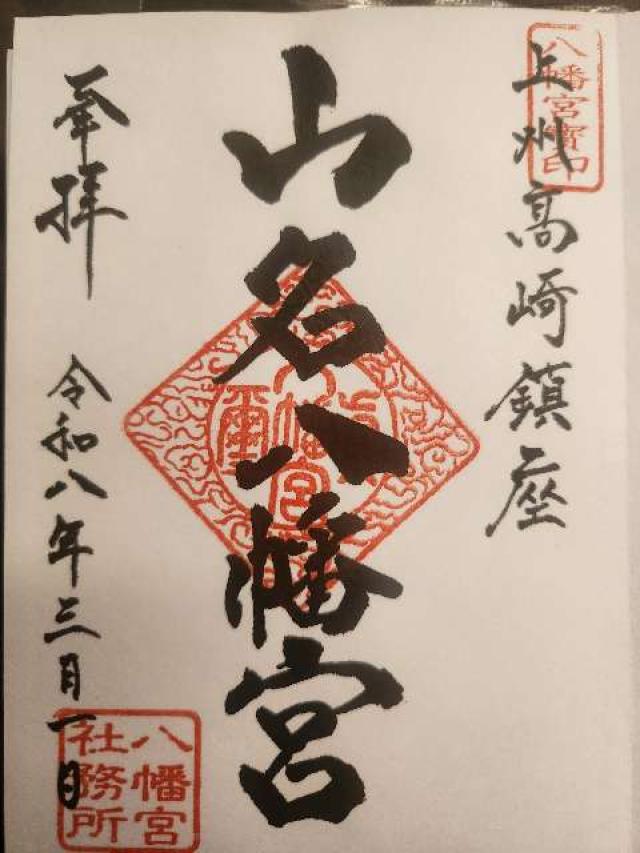 上州高崎鎮座
八幡宮寳印
山名八幡宮
奉拝
令和八年三月一日
八幡宮
社務所